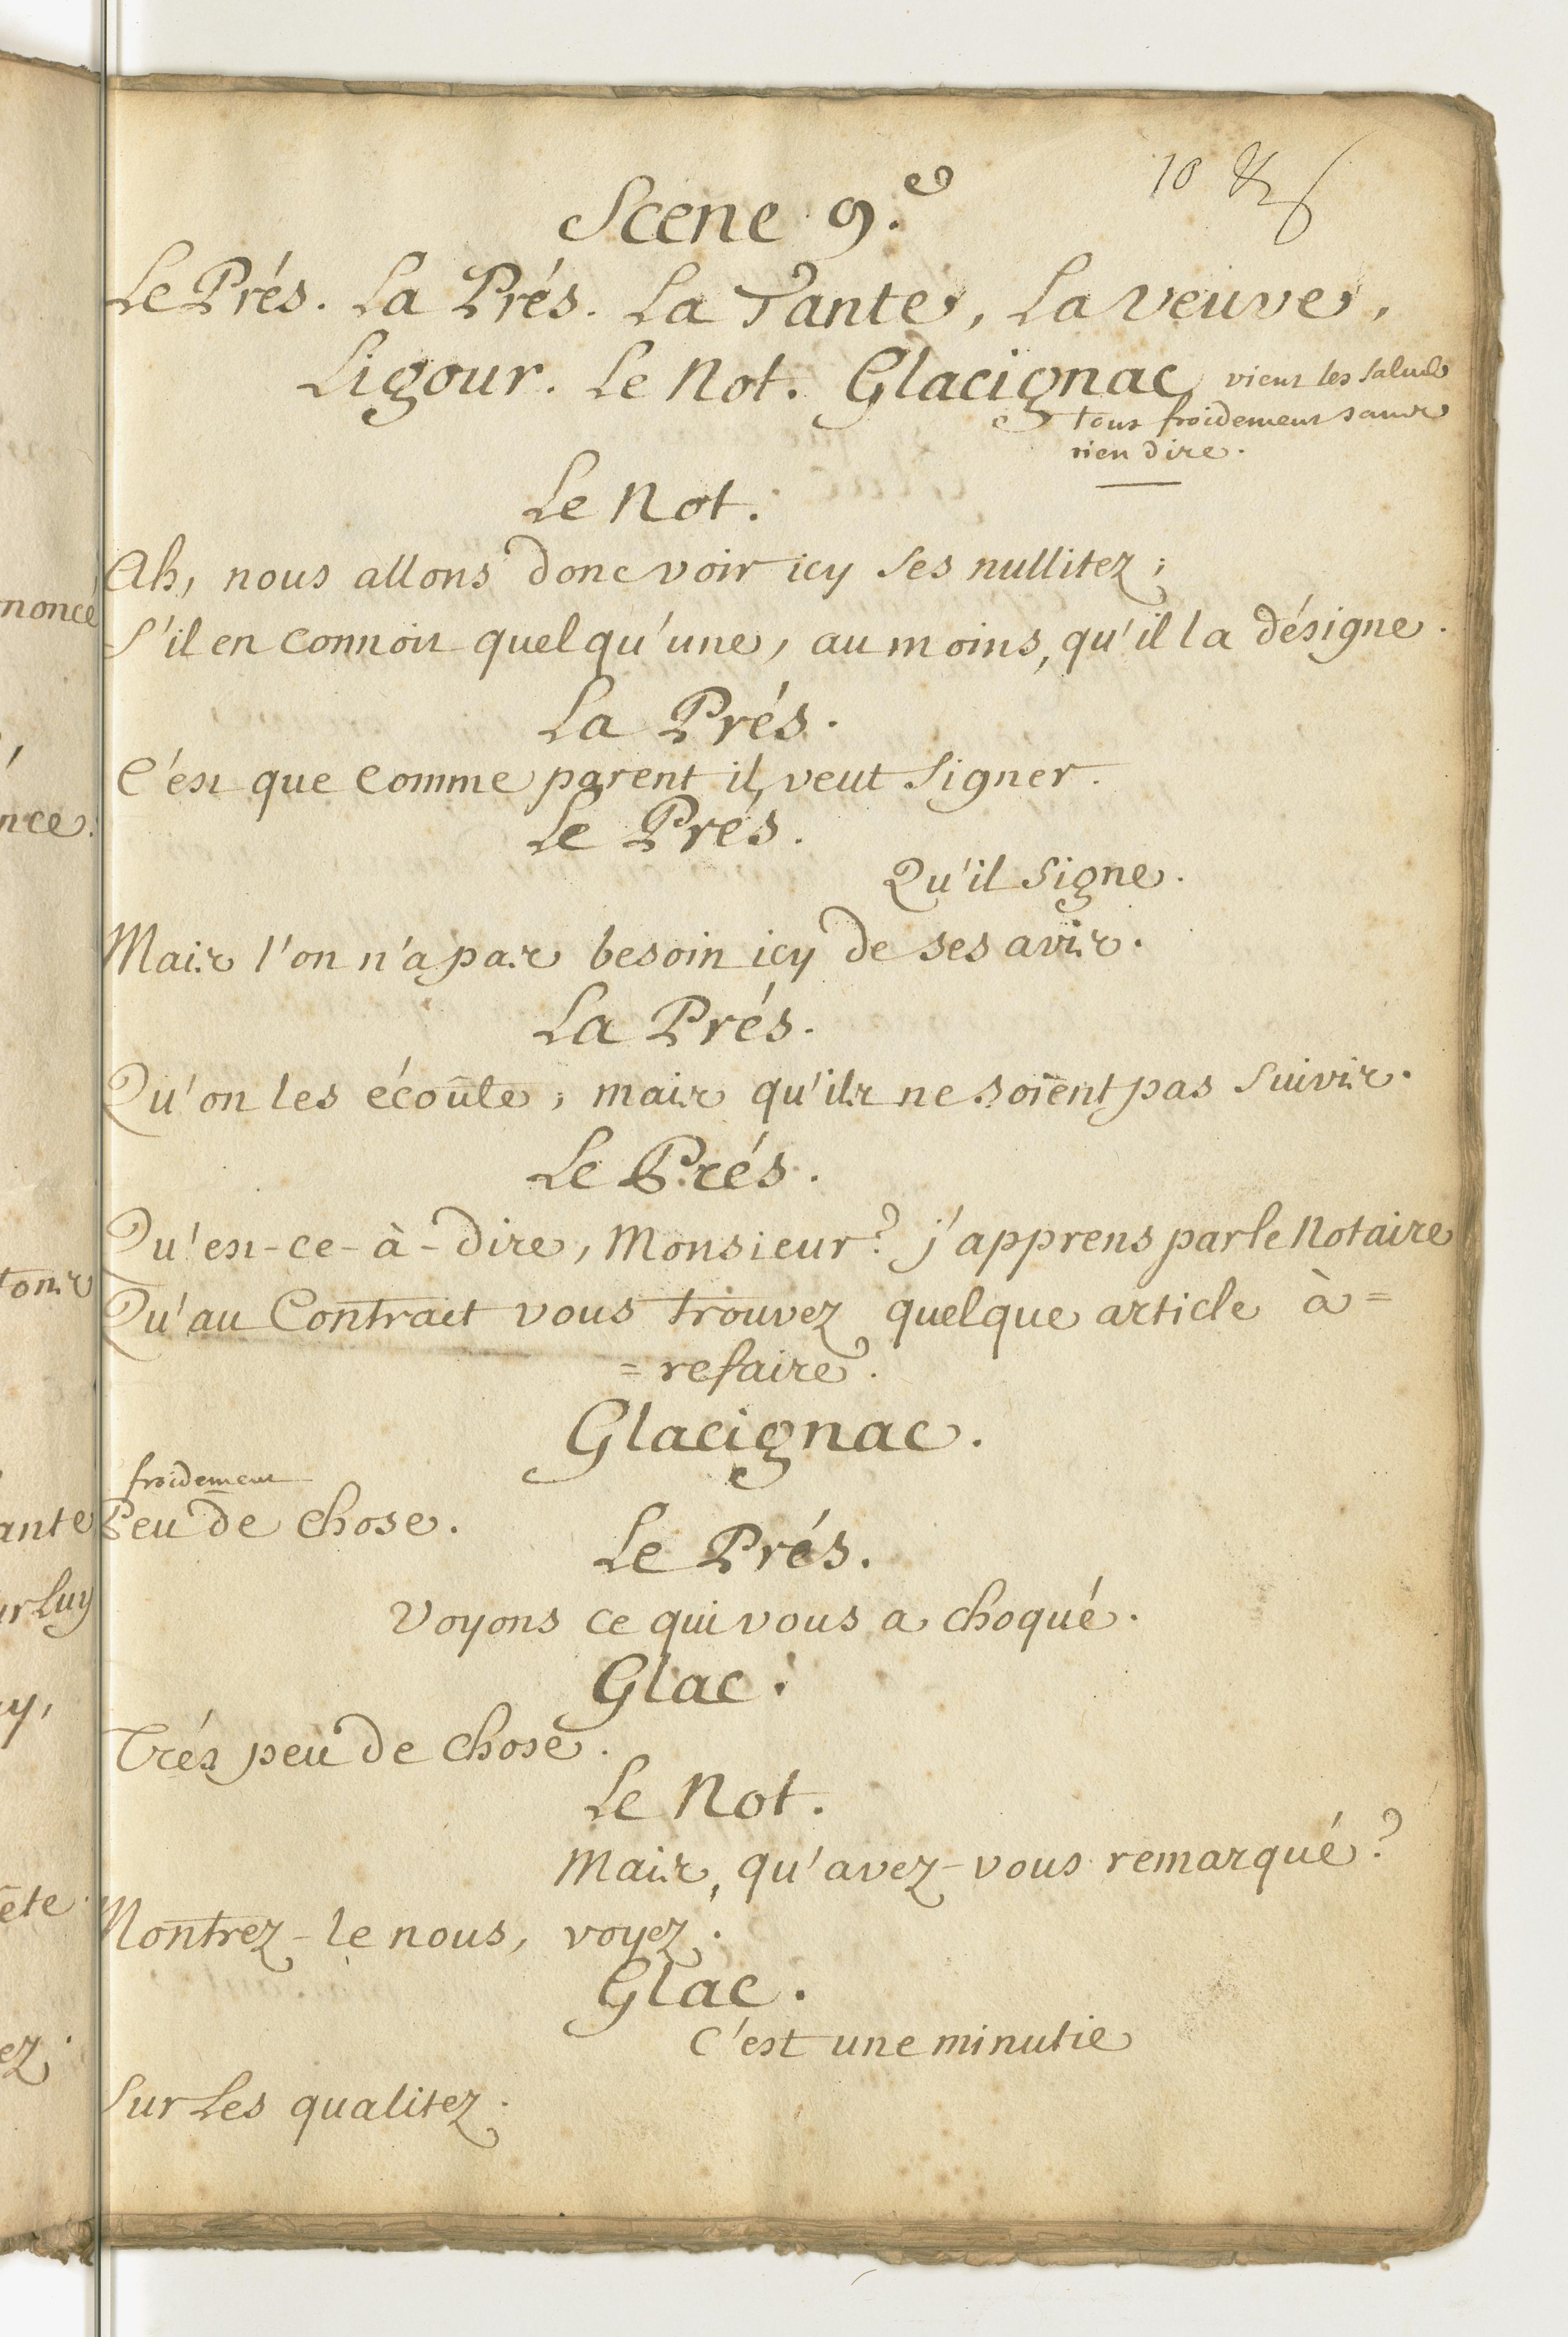 10
Scene 9.e
Le Prés. La Prés. La Tante, La veuve,
Ligour. Le Not. Glacignac vient les salue
tous froidement sans
rien dire.
Le Not.
Ah, nous allons donc voir icy ses nullitez;
S'il en connoit quelqu'une, au moins, qu'il la désigne.
La Prés.
C'est que comme parent il veut signer.
Le Prés.
Qu'il signe.
Mais l'on n'a pas besoin icy de ses avis.
La Prés.
Qu'on les écoûte; mais qu'ils ne soïent pas suivis.
Le Prés.
Qu'est-ce-à-dire, Monsieur? j'apprens par le Notaire
Qu'au Contract vous trouvez quelque article à=
=refaire.
Glacignac.
froidement
Peu de chose.
Le Prés.
Voyons ce qui vous a choqué.
Glac.
Trés peu de chose.
Le Not.
Mais, qu'avez-vous remarqué?
Montrez-le nous, voyez.
Glac.
C'est une minutie
Sur les qualitez.
noncé
nce.
tons
ante
ur luy
uy,
ête
ez.